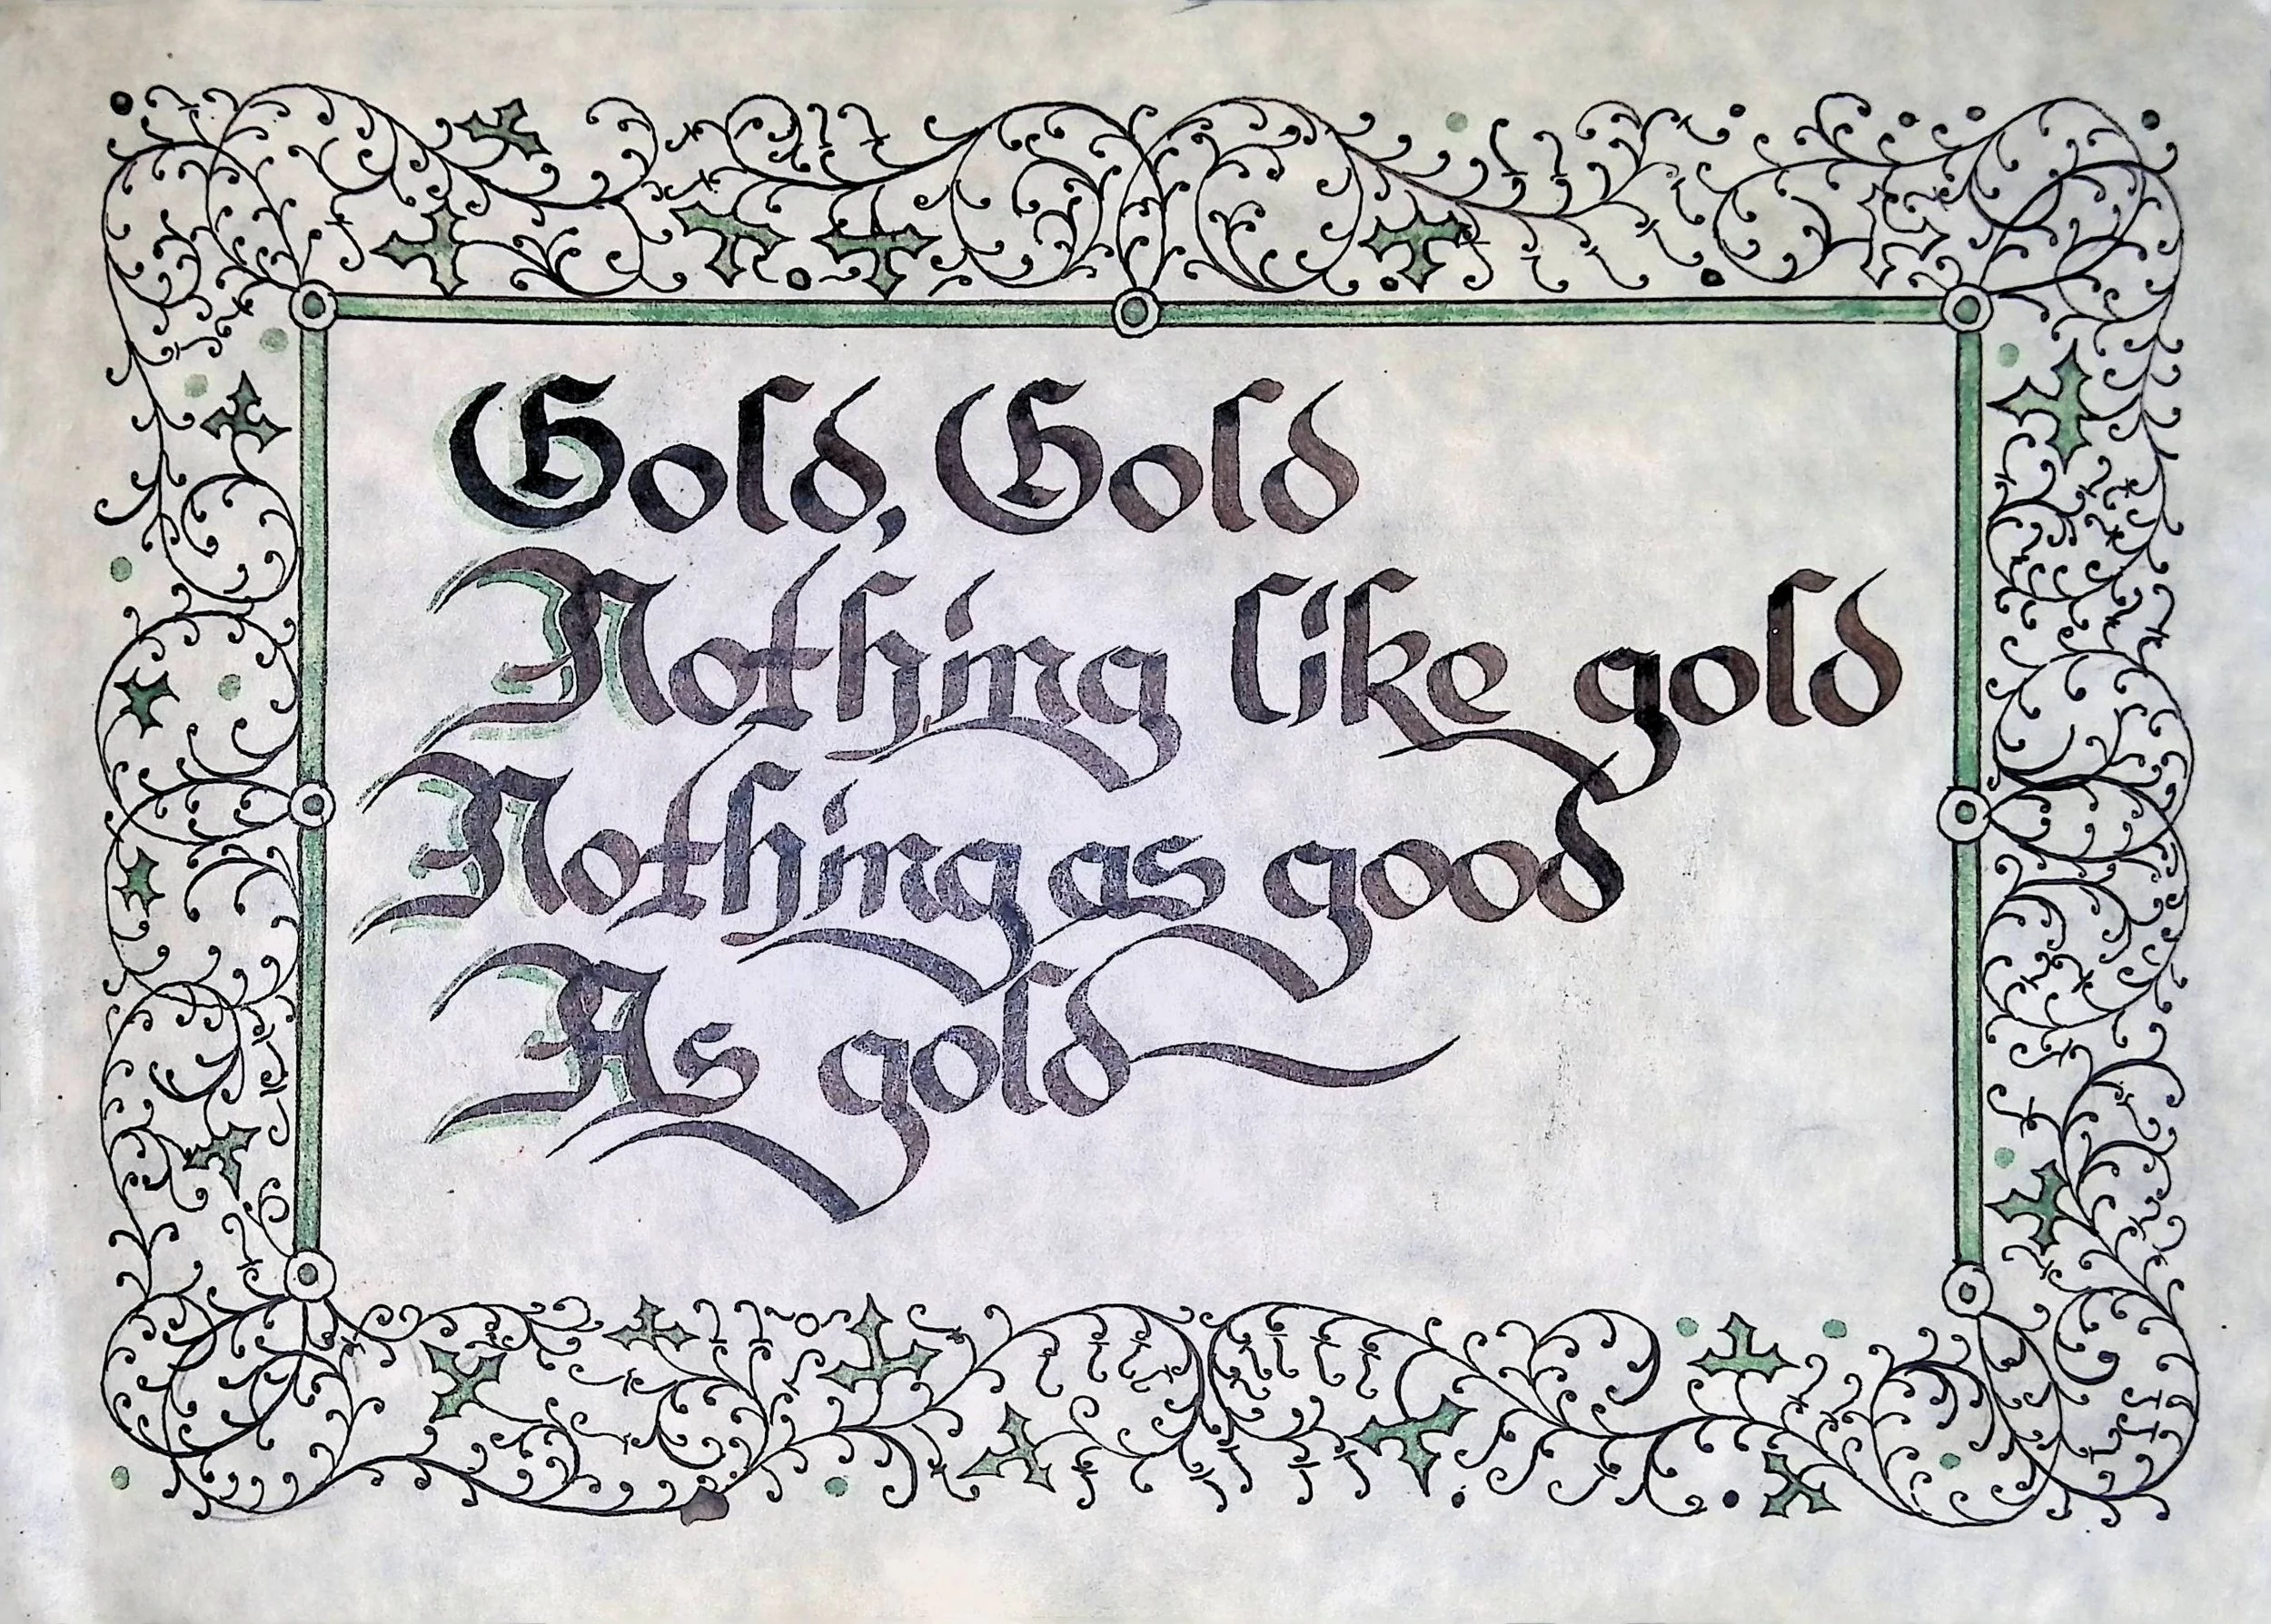 Gold, Gold
Nothing like gold
Nothing as good
As gold